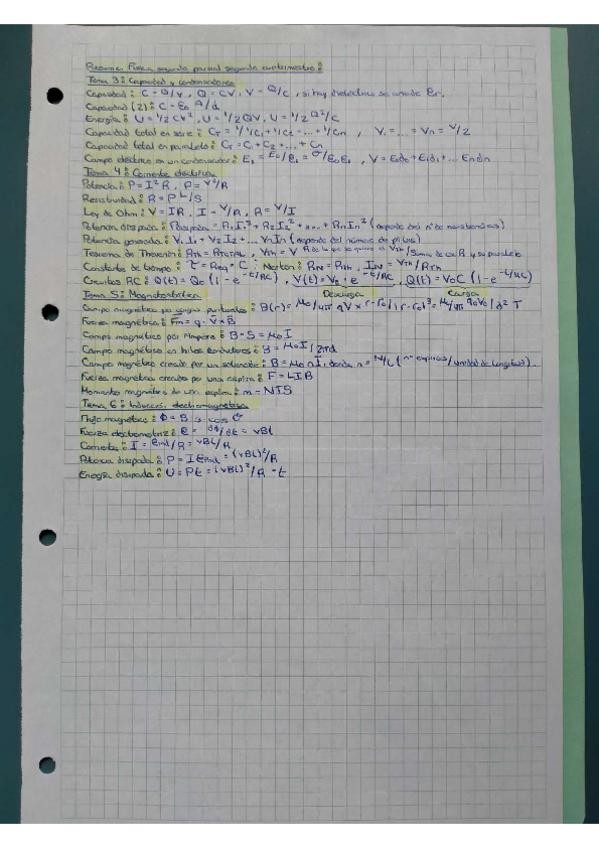 Resumen Física segundo parcial segundo cuatrimestre:
Tema 3: Capacidad y condensadores
Capacidad: C = Q/V, Q = CV, V = Q/C, si hay dieléctrico se añade Er.
Capacidad (2): C = ε0 A/d
Energía: U = 1/2 CV², U = 1/2 QV, U = 1/2 Q²/C
Capacidad total en serie: CT = 1/1/C1 + 1/C2 + ... + 1/Cn, V1 = ... = Vn = V/2
Capacidad total en paralelo: CT = C1 + C2 + ... + Cn
Campo eléctrico en un condensador: E1 = E0/ε1 = σ/ε0ε1, V = E0d0 + E1d1 ... Endn
Tema 4: Corriente eléctrica
Potencia: P = I²R, P = V²/R
Resistividad: R = ρ L/S
Ley de Ohm: V = IR, I = V/R, R = V/I
Potencia disipada: Pdisipada = R1I1² + R2I2² + ... + RnIn² (depende del nº de resistencias)
Potencia generada: V1I1 + V2I2 + ... VnIn (depende del número de pilas)
Teorema de Thevenin: RTH = RTOTAL, VTH = V
Constante de tiempo: τ = Req · C; Norton: RN = RTH, IN = VTH/RTH
Circuitos RC: Q(t) = Q0 (1 - e^-t/RC), V(t) = V0 · e^-t/RC, Q(t) = V0C (1 - e^-t/RC)
Tema 5: Magnetostática Descarga Carga
Campo magnético por cargas puntuales: B(r) = μ0/4π qV × r-r0/|r-r0|³ = μ0/4π q0V0/d² T
Fuerza magnética: Fm = q · V × B
Campo magnético por Ampere: B · S = μ0 I
Campo magnético en hilos conductores: B = μ0 I/2πd
Campo magnético creado por un solenoide: B = μ0 n I, donde n = N/L (nº espiras/unidad de longitud).
Fuerza magnética creada por una espira: F = LIB
Momento magnético de una espira: m = NIS
Tema 6: Inducción electromagnética
Flujo magnético: Φ = B S cos θ
Fuerza electromotriz: ε = dΦ/dt = vBl
Corriente: I = εind/R = vBl/R
Potencia disipada: P = I εind = (vBl)²/R
Energía disipada: U = Pt = (vBl)²/R · t